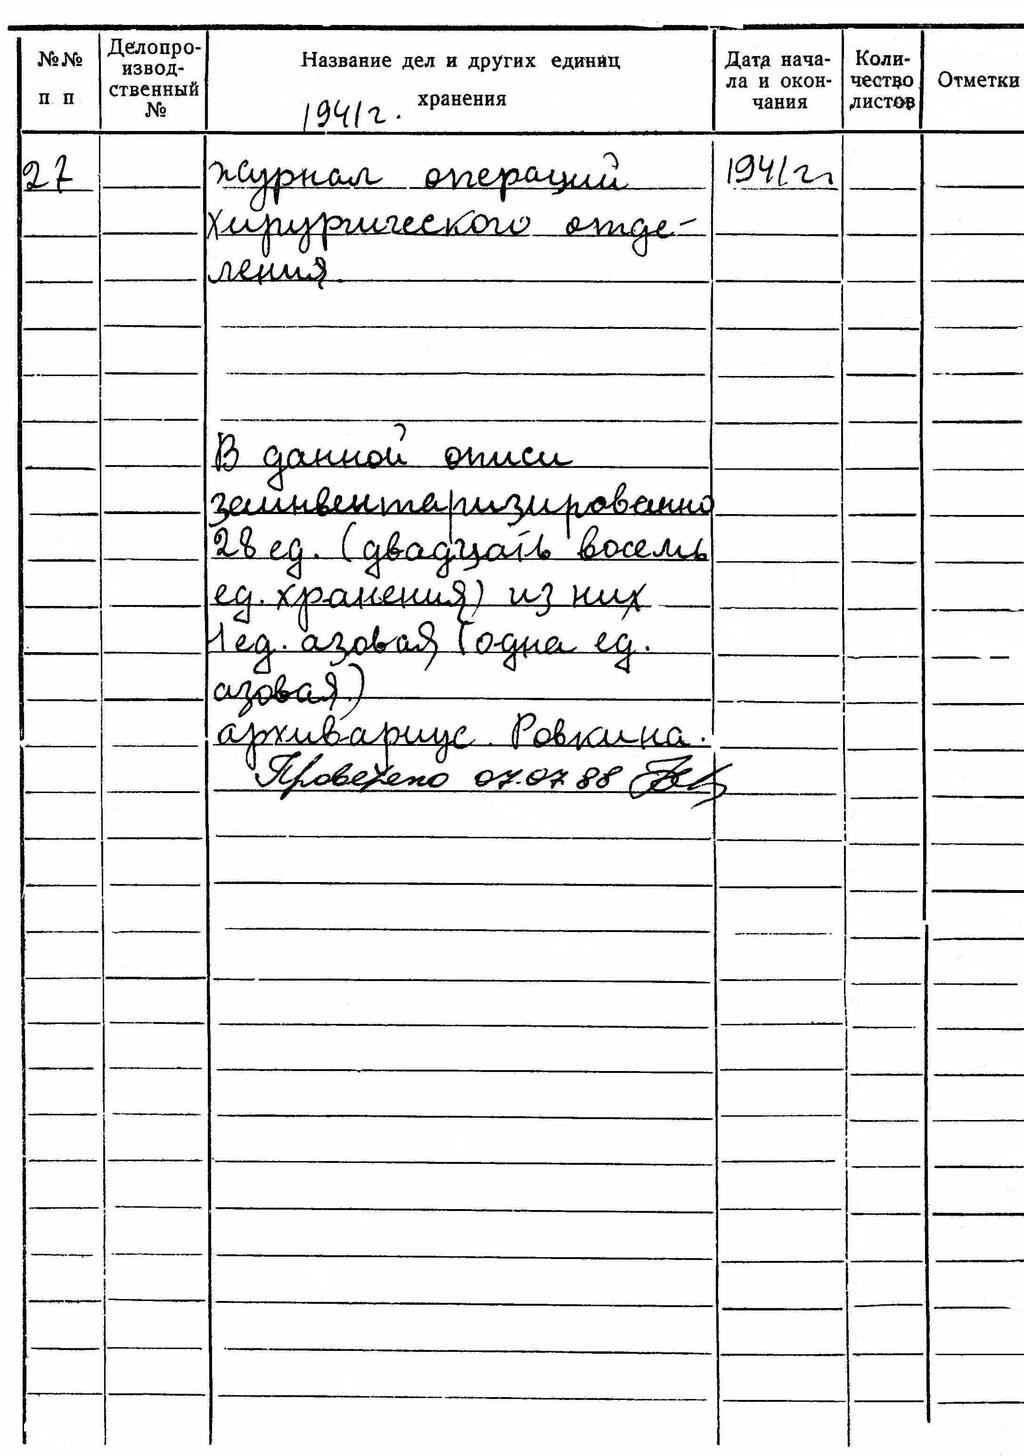 №№ п п
Делопро-
извод-
ственный
№
Название дел и других единиц
хранения
1941г.
Дата нача-
ла и окон-
чания
Коли-
чество
листов
Отметки
27 Журнал операций 1941г.
хирургического отде-
ления.
В данной описи
заинвентаризированно
28 ед. (двадцать восемь
ед. хранения) из них
1 ед. азовая (одна ед.
азовая)
архивариус. Ровкина.
Проверено 07.07.88